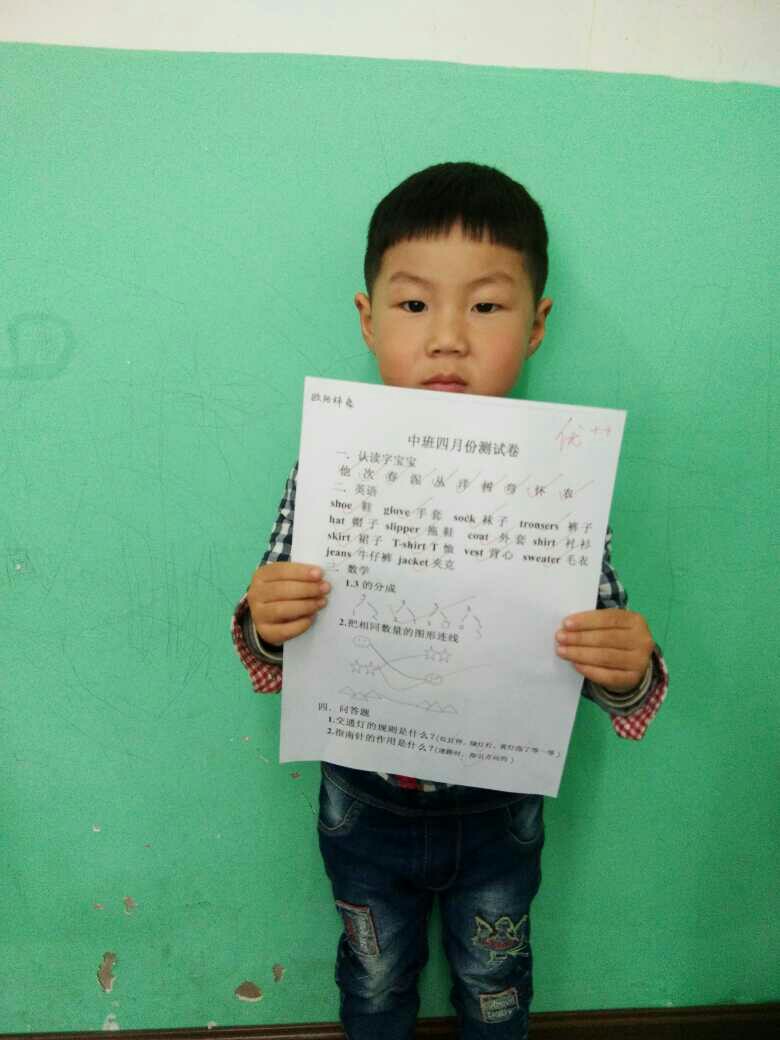 优++
中班四月份测试卷
一、认读字宝宝
他 次 春 泥 丛 洋 树 弯 怀 农
二、英语
shoe 鞋 glove 手套 sock 袜子 tronsers 裤子
hat 帽子 slipper 拖鞋 coat 外套 shirt 衬衫
skirt 裙子 T-shirt T恤 vest 背心 sweater 毛衣
jeans 牛仔裤 jacket 夹克
三、数学
1.3的分成
2.把相同数量的图形连线
四、问答题
1.交通灯的规则是什么？(红灯停，绿灯行，黄灯亮了等一等)
2.指南针的作用是什么？(迷路时，指引方向的)